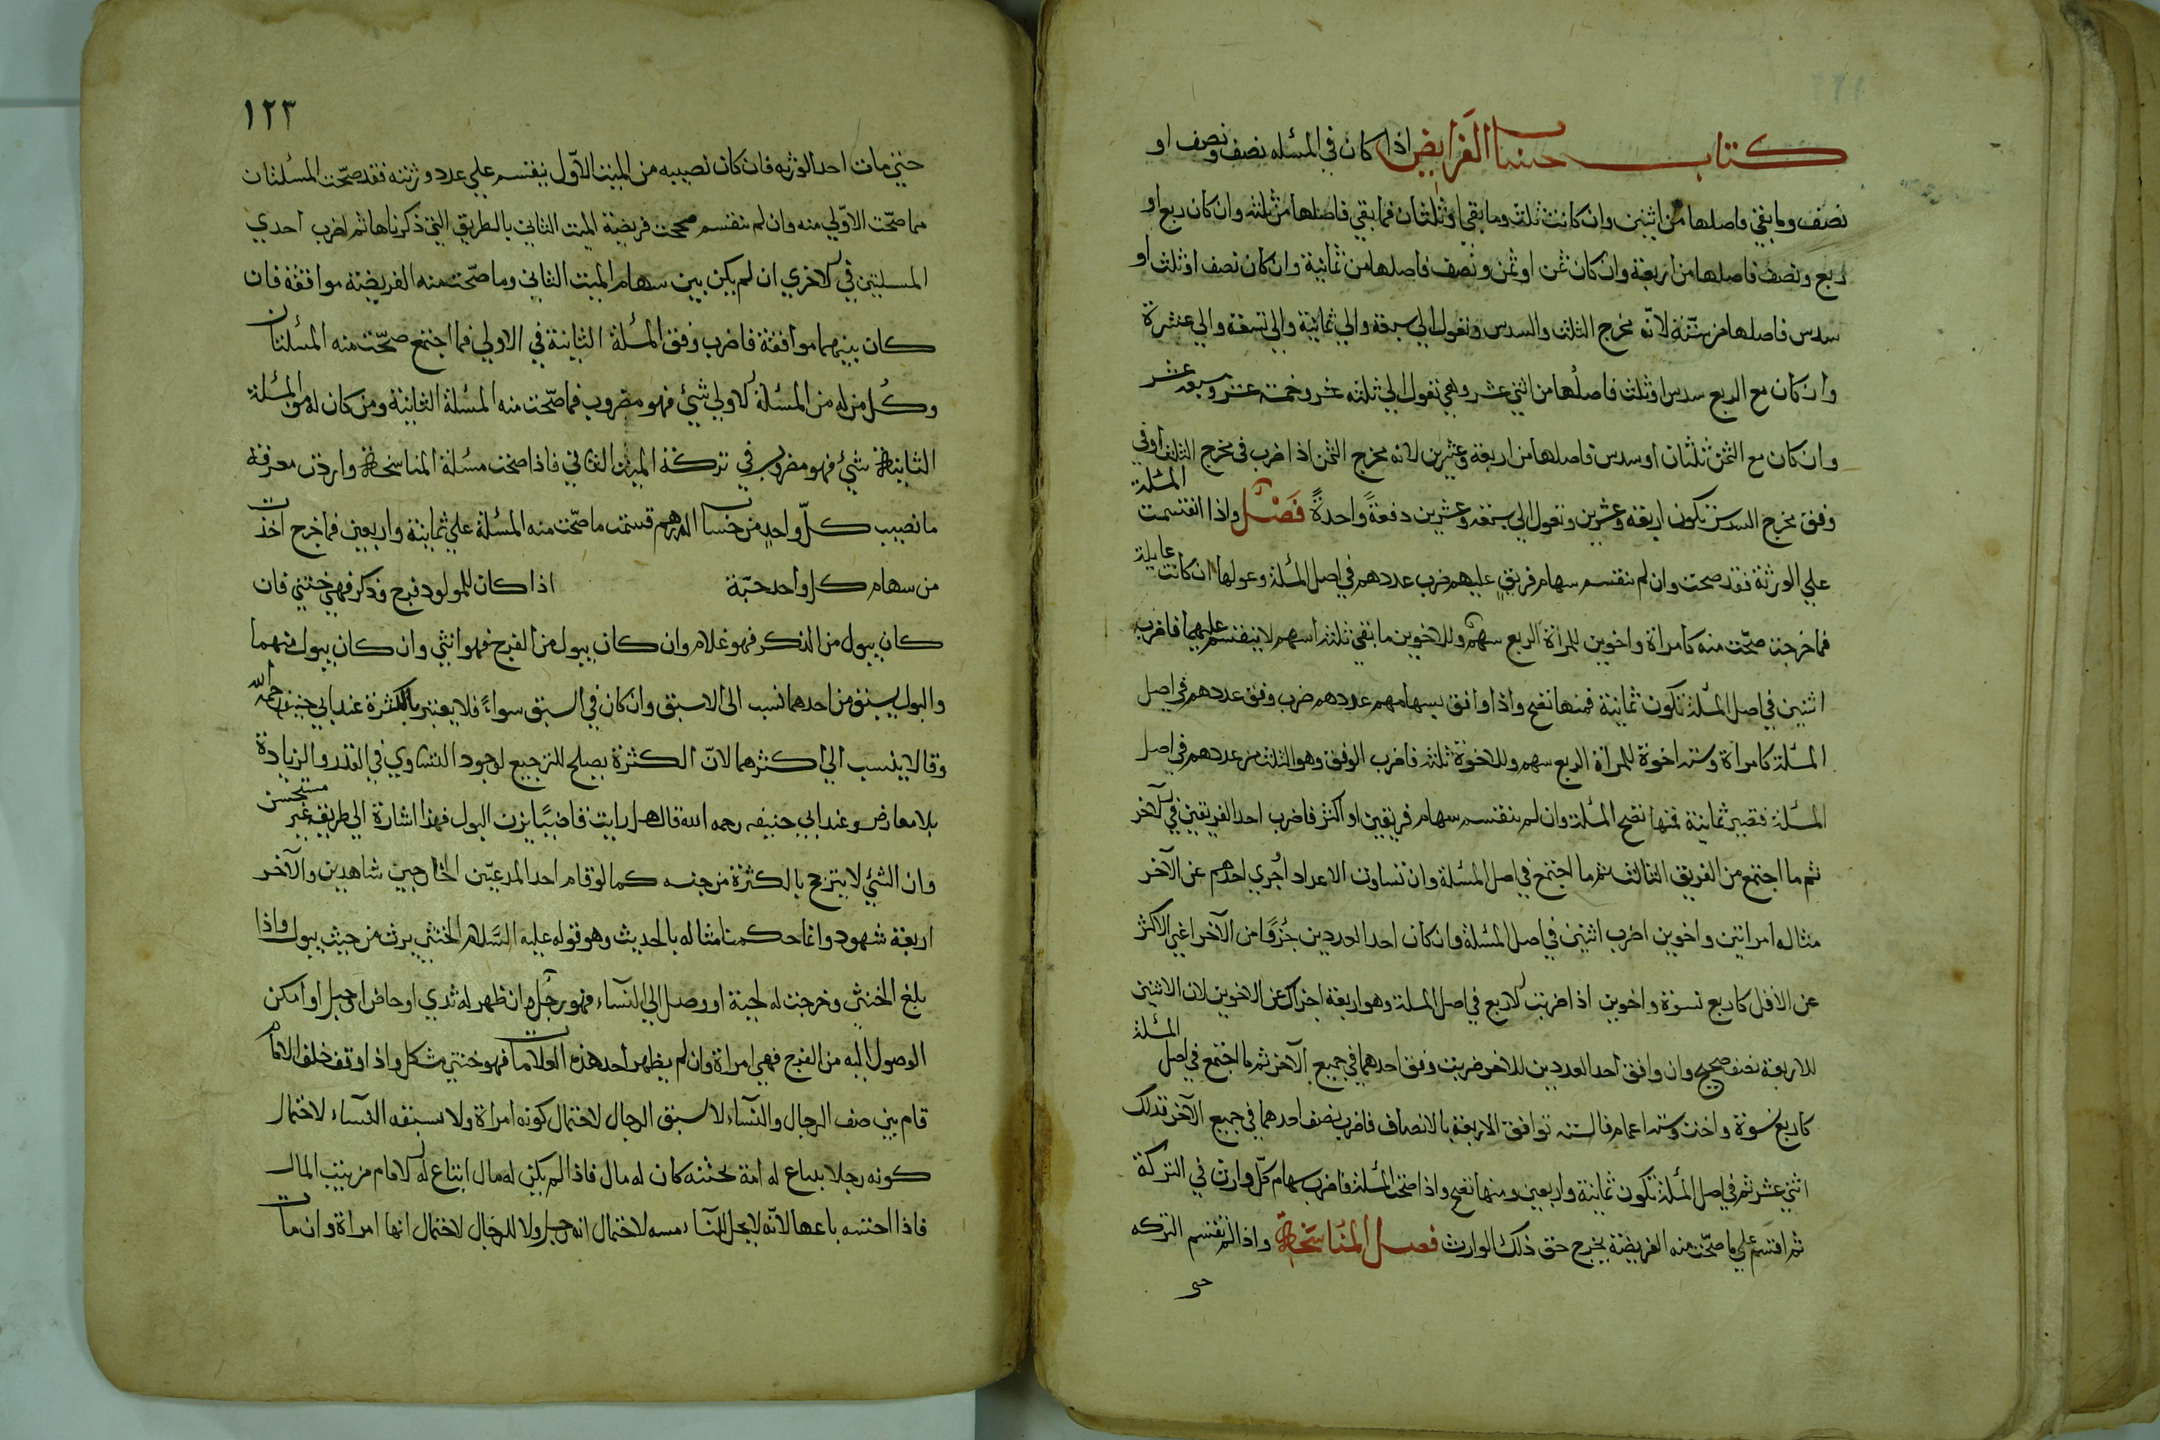 كتاب حساب الفرايض اذا كان في المسئله نصف ونصف او
نصف وما بقي فاصلها من اثنين وان كانت ثلث وما بقي او ثلثان فما بقي فاصلها من ثلثه وان كان ربع او
ربع ونصف فاصلها من اربعة وان كان ثمن او ثمن ونصف فاصلها من ثمانية وان كان نصف او ثلث او
سدس فاصلها من ستة لانه مخرج الثلث والسدس وتعول الي سبعة والي ثمانية والي تسعة والي عشرة
وان كان مع الربع سدس او ثلث فاصلها من اثني عشر وهي تعول الي ثلثه عشر وخمسة عشر وسبعه عشر
وان كان مع الثمن ثلثان او سدس فاصلها من اربعة وعشرين لانه مخرج الثمن اذا اضرب في مخرج الثلث او في
وفق مخرج السدس تكون اربعة وعشرين وتعول الي سبعه وعشرين دفعةً واحدةً فَصْل واذا انقسمت المسئلة
علي الورثة فقد صحت وان لم تنقسم سهام فريقٍ عليهم ضرب عددهم في اصل المسئلة وعولها ان كانت عايلة
فما خرجت صحّت منه كامراة واخوين للمراة الربع سهم وللاخوين ما بقي ثلثة اسهم لا ينقسم عليهما فاضرب
اثنين في اصل المسئلة تكون ثمانية فمنها تصح واذا وافق سهامهم عددهم ضرب وفق عددهم في اصل
المسئلة كامراة وستة اخوة للمراة الربع سهم وللاخوة ثلثه فاضرب الوفق وهو الثلث من عددهم في اصل
المسئلة فتصير ثمانية فمنها تصح المسئلة وان لم تنقسم سهام فريقين او اكثر فاضرب احد الفريقين في الآخر
ثم ما اجتمع من الفريق الثالث ثم ما اجتمع في اصل المسئلة وان تساوت الاعداد اُجزي احدهم عن الآخر
مثاله امراتين واخوين اضرب اثنين في اصل المسئلة وان كان احد العددين جُزوًا من الآخر اغني الاكثر
عن الاقل كاربع نسوة واخوين اذا ضربت الاربع في اصل المسلة وهو اربعة اجزاك عن الاخوين لان الاثنين
للاربعة نصف صحيح وان وافق احد العددين للاخر ضربت وفق احدهما في جميع الآخر ثم ما اجتمع في اصل المسئلة
كاربع نسوة واخت وستة اعمام فالسته توافق الاربعة بالانصاف فاضرب نصف احدهما في جميع الآخر فذلك
اثني عشر ثم في اصل المسئلة تكون ثمانية واربعين ومنها تصح واذا صحت المسئلة فاضرب سهام كلّ وارث في التركة
ثم اقسم علي ما صحّت منه الفريضة يخرج حق ذلك الوارث فصل المناسخة واذا لم تقسم التركه
حتي
١٢٣
حتي مات احد الورثه فان كان نصيبه من الميت الاوّل ينقسم علي عدد ورثته فقد صحّت المسئلتان
مما صحّت الاوّلي منه وان لم تنقسم صححت فريضة الميت الثاني بالطريق التي ذكرناها ثم اضرب احدي
المسلتين في الاخري ان لم يكن بين سهام الميت الثاني وما صحّت منه الفريضة موافقة فان
كان بينهما موافقة فاضرب وفق المسئلة الثانية في الاولي فما اجتمع صحّت منه المسئلتان
وكُل من له من المسئلة الاولي شيْئ فهو مضروب فما صحّت منه المسئلة الثانية ومن كان له من المسئلة
الثانية شيئ فهو مضروب في تركة الميت الثاني فاذا صحت مسئلة المناسخة واردت معرفة
ما نصيب كلّ واحد من حساب الدرهم قسمت ما صحّت منه المسئلة علي ثمانية واربعين فما خرج اخذت
من سهام كل واحد حبّة اذا كان للمولود فرج وذكر فهو خنثي فان
كان يبول من الذكر فهو غلام وان كان يبول من الفرج فهو انثي وان كان يبول منهما
والبول يسبق من احدهما نسب الى الاسبق وان كان في السبق سواءً فلا يعتبر بالكثرة عند ابي حنيفه رحمه الله
وقالا ينسب الي اكثرهما لانّ الكثرة يصلح للترجيح لوجود التساوي في القدر والزيادة
بلا معارض وعند ابي حنيفه رحمه الله قال هل رايت قاضيًا يزن البول فهذا اشارة الي طريقه غير مستحسن
وان الشيُ لا يترجح بالكثرة من جنسه كما لو قام احد المدعيّين الخارجين شاهدين والآخر
اربعة شهود وانما حكمنا مثاله بالحديث وهو قوله عليه السَّلام الخنثي يرث من حيث يبول واذا
بلغ الخنثي وخرجت له لحية او وصل الي النسآء فهو رجُل وان ظهر له ثدي او حاض او حبل او امكن
الوصول اليه من الفرج فهي امراة وان لم يظهر احد هذه العلامات فهو خنثي مشكل واذا وقف خلف الامام
قام بين صف الرجال والنسآء لا يسبق الرجال لاحتمال كونه امراة ولا يسبقه النسآء لاحتمال
كونه رجلا يبتاع له امة تختنه كان له مال فاذا لم يكن له مال ابتاع له الامام من بيت المال
فاذا اختنته باعها لانّه لا يحل للنسا يمسه لاحتمال انه رجل ولا للرجال لاحتمال انها امراة وان مات